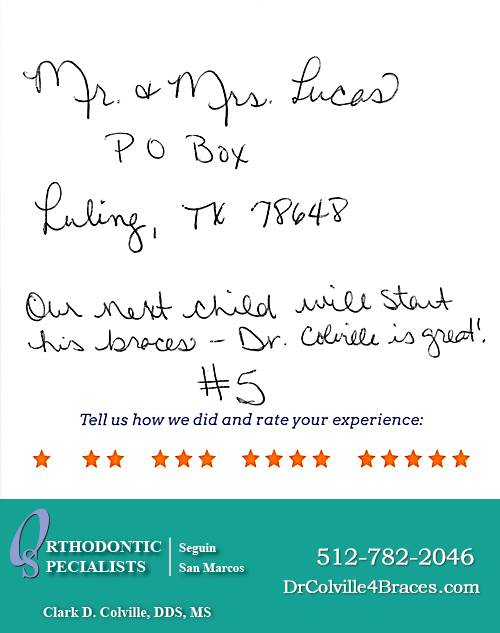 Mr. & Mrs. Lucas
PO Box
Luling, TX 78648
Our next child will start
his braces - Dr. Colville is great!
#5
Tell us how we did and rate your experience:
ORTHODONTIC
SPECIALISTS
Seguin
San Marcos
512-782-2046
DrColville4Braces.com
Clark D. Colville, DDS, MS